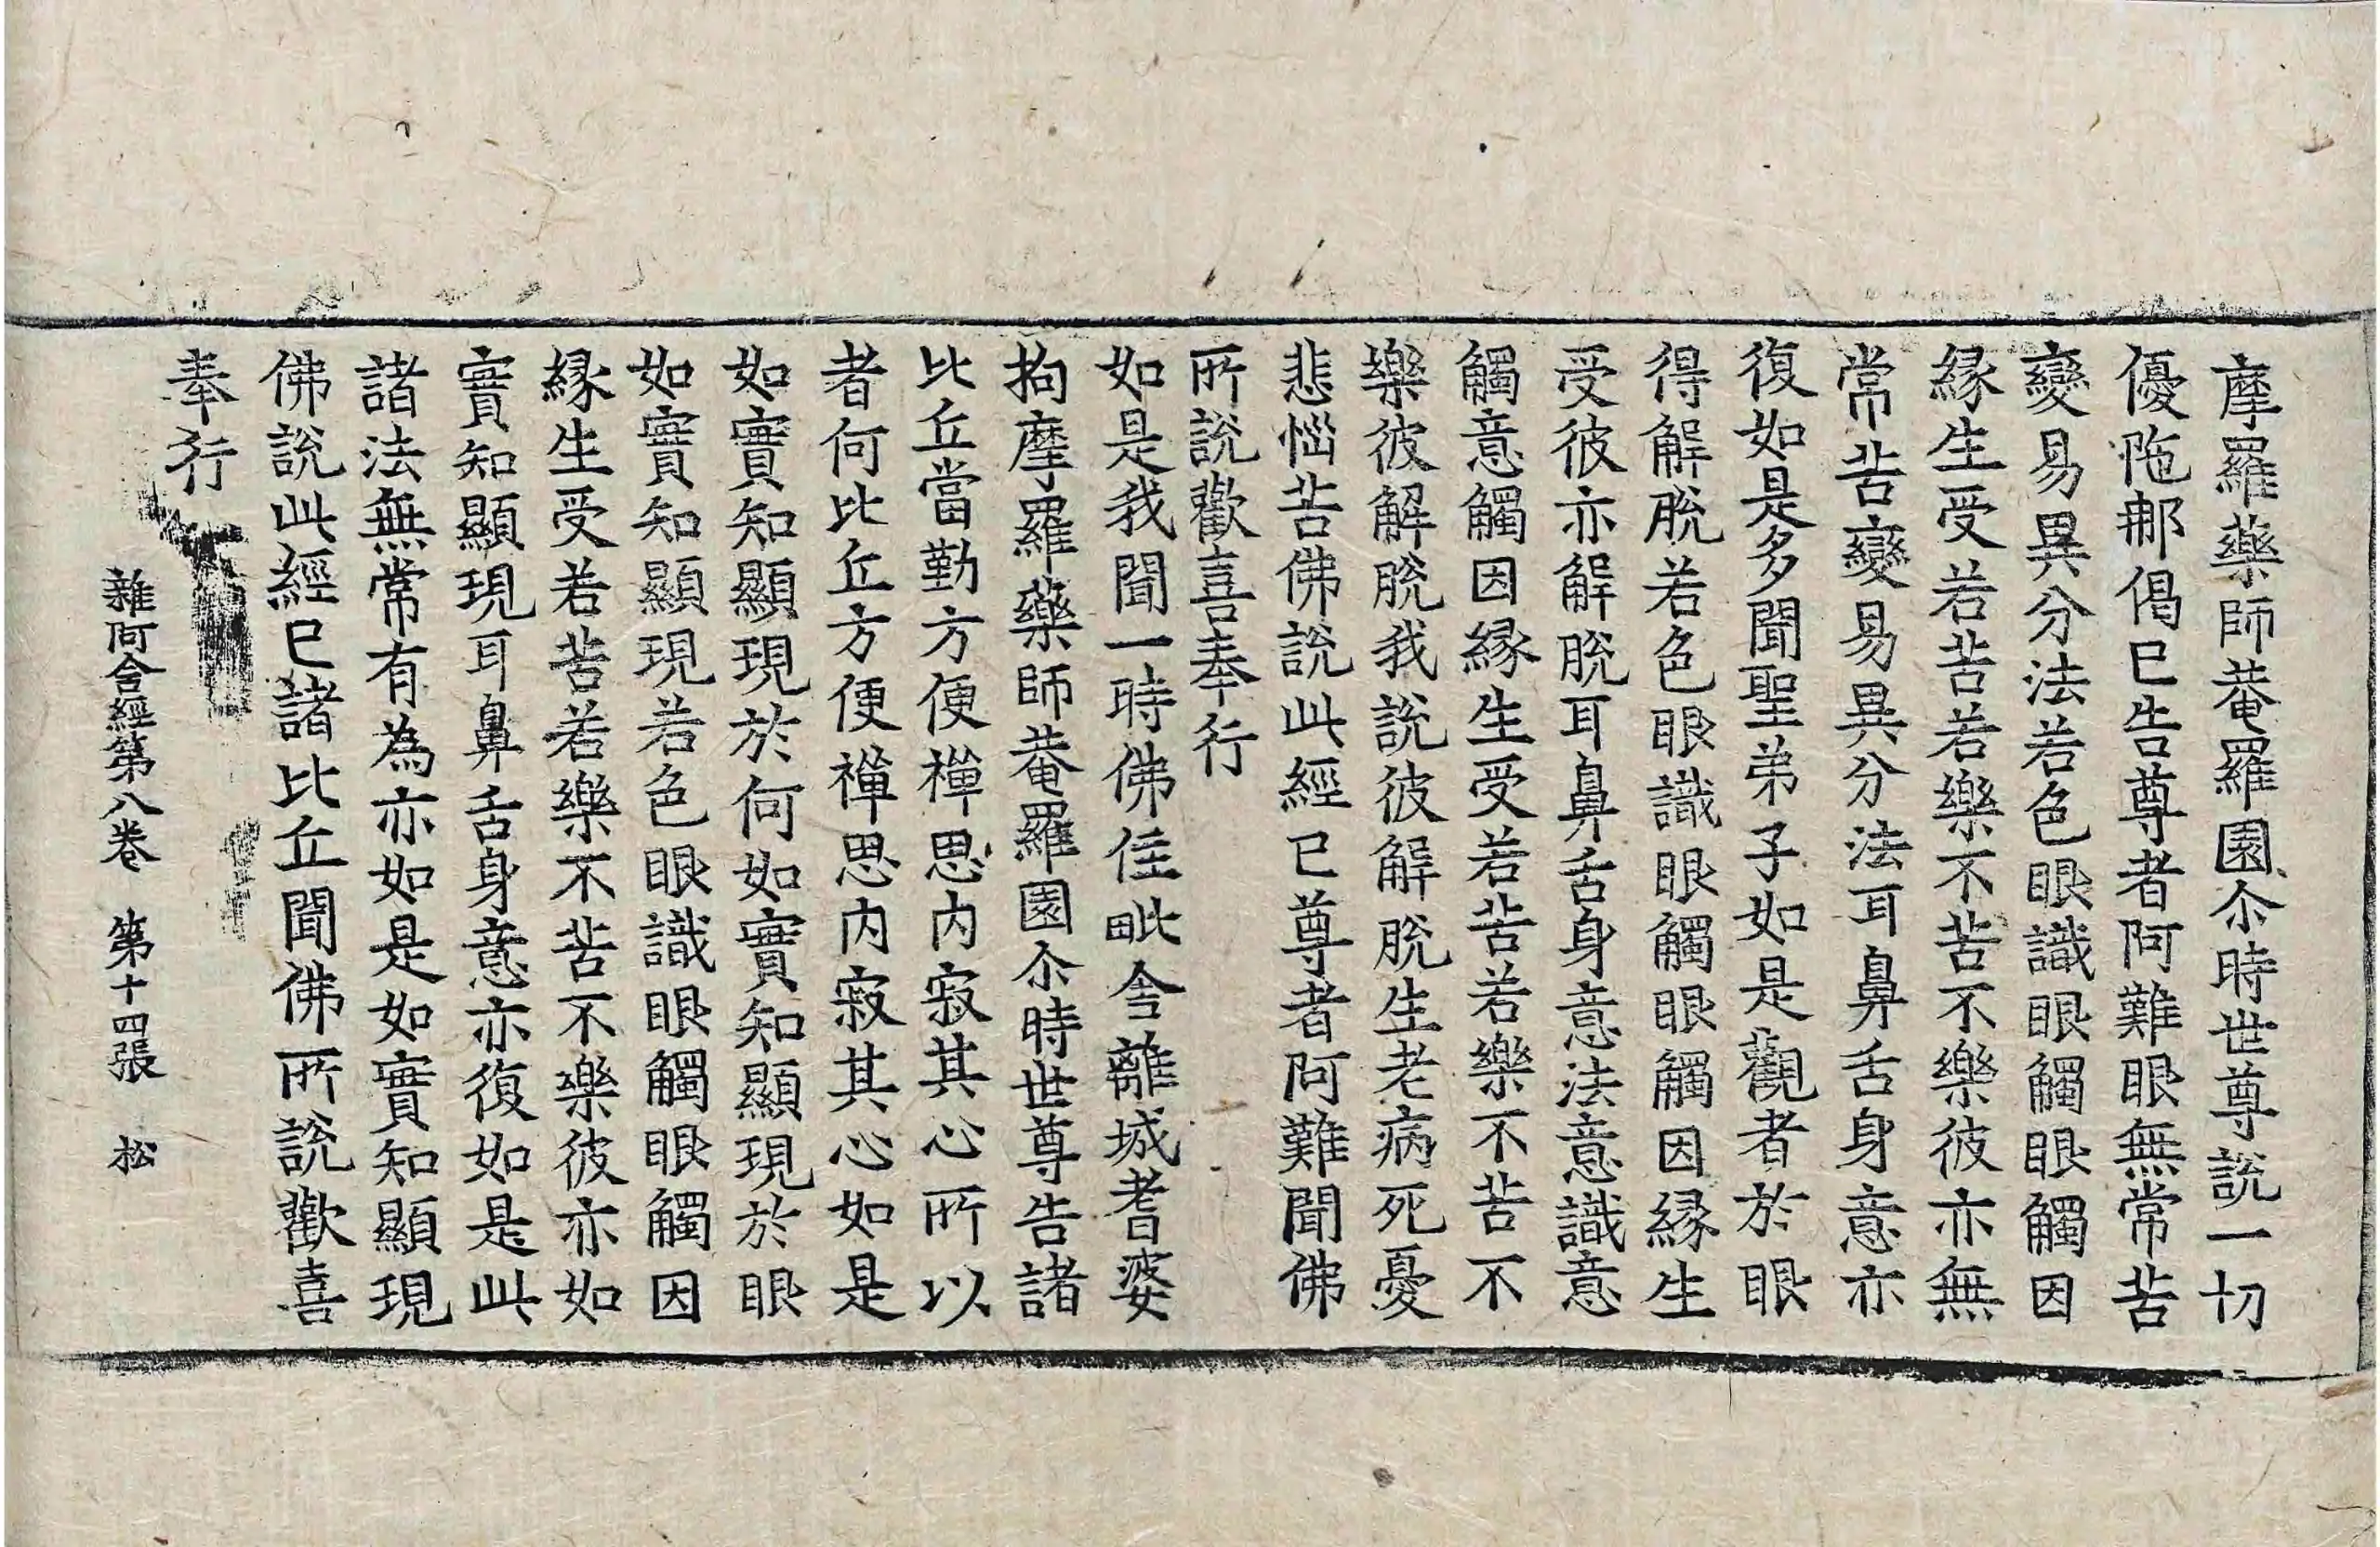 摩羅藥師菴羅園尒時世尊說一切
優陁那偈已告尊者阿難眼無常苦
變易異分法若色眼識眼觸眼觸因
緣生受若苦若樂不苦不樂彼亦無
常苦變易異分法耳鼻舌身意亦
復如是多聞聖弟子如是觀者於眼
得解脫若色眼識眼觸眼觸因緣生
受彼亦解脫耳鼻舌身意法意識意
觸意觸因緣生受若苦若樂不苦不
樂彼解脫我說彼解脫生老病死憂
悲惱苦佛說此經已尊者阿難聞佛
所說歡喜奉行
如是我聞一時佛住毗舍離城耆婆
拘摩羅藥師菴羅園尒時世尊告諸
比丘當勤方便禪思內寂其心所以
者何比丘方便禪思內寂其心如是
如實知顯現於何如實知顯現於眼
如實知顯現若色眼識眼觸眼觸因
緣生受若苦若樂不苦不樂彼亦如
實知顯現耳鼻舌身意亦復如是此
諸法無常有為亦如是如實知顯現
佛說此經已諸比丘聞佛所說歡喜
奉行
雜阿含經第八卷 第十四張 松